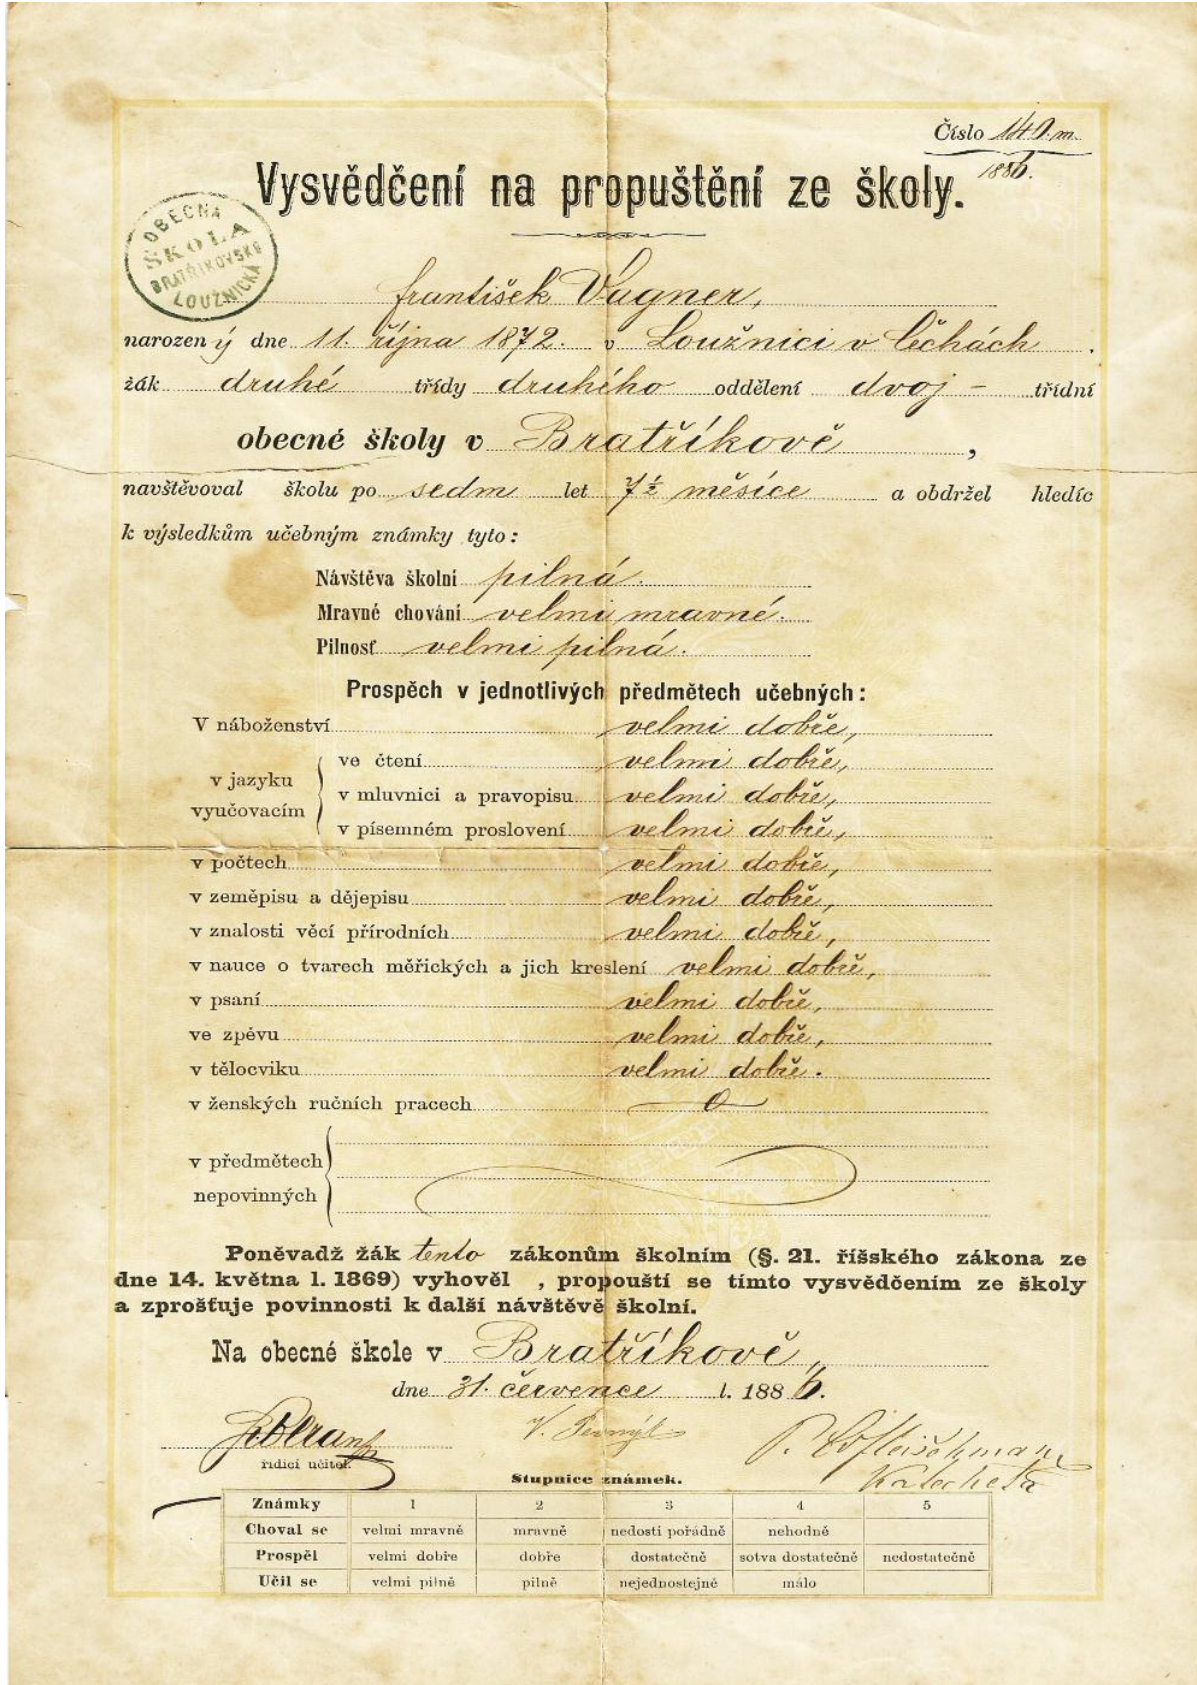 Číslo 140.m.
1886.
Vysvědčení na propuštění ze školy.
OBECNÁ
ŠKOLA
BRATŘÍKOVSKO
LOUŽNICKÁ
František Vágner,
narozený dne 11. října 1872. v Loužnici v Čechách.
žák druhé třídy druhého oddělení dvoj- třídní
obecné školy v Bratříkově,
navštěvoval školu po sedm let 7½ měsíce a obdržel hledíc
k výsledkům učebným známky tyto:
Návštěva školní pilná.
Mravné chování velmi mravné.
Pilnosť velmi pilná.
Prospěch v jednotlivých předmětech učebných:
V náboženství velmi dobře,
v jazyku vyučovacím
ve čtení velmi dobře,
v mluvnici a pravopisu velmi dobře,
v písemném proslovení velmi dobře,
v počtech velmi dobře,
v zeměpisu a dějepisu velmi dobře,
v znalosti věcí přírodních velmi dobře,
v nauce o tvarech měřických a jich kreslení velmi dobře,
v psaní velmi dobře,
ve zpěvu velmi dobře,
v tělocviku velmi dobře.
v ženských ručních pracech 0
v předmětech
nepovinných
Poněvadž žák tento zákonům školním (§. 21. říšského zákona ze
dne 14. května l. 1869) vyhověl , propouští se tímto vysvědčením ze školy
a zprošťuje povinnosti k další návštěvě školní.
Na obecné škole v Bratříkově,
dne 31. července l. 1886.
V.
P.
řídící učitel.
Katecheta
Stupnice známek.
Známky 1 2 3 4 5
Choval se velmi mravně mravně nedosti pořádně nehodně
Prospěl velmi dobře dobře dostatečně sotva dostatečně nedostatečně
Učil se velmi pilně pilně nejednostejně málo